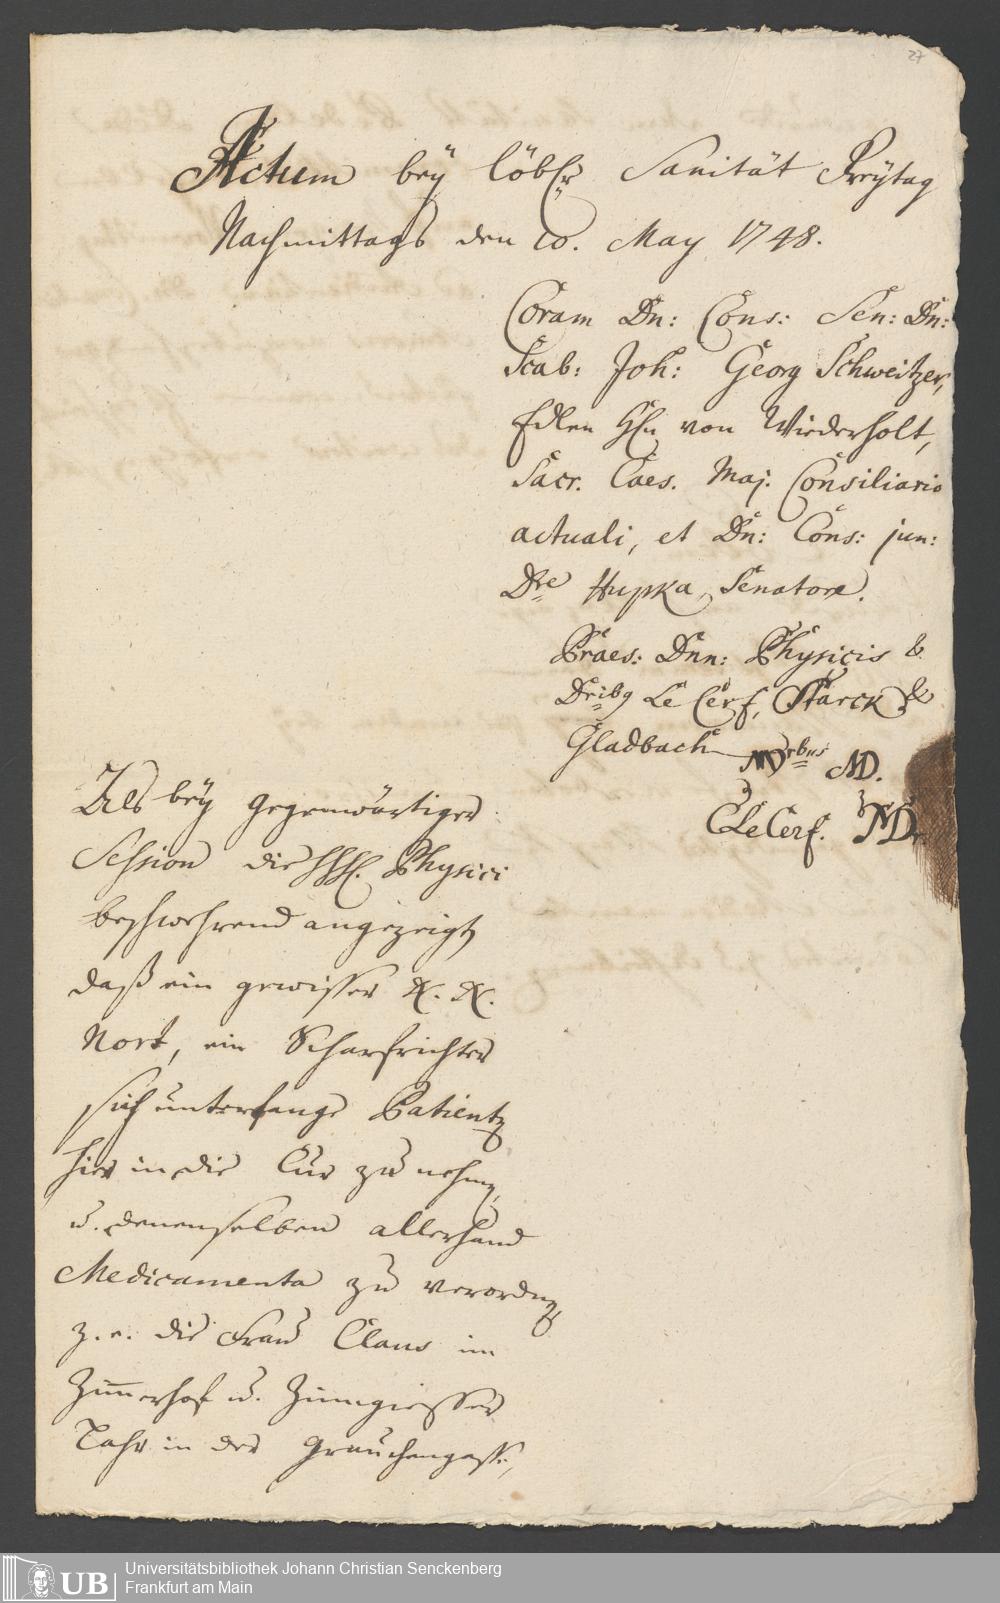 27
Actum bey löbl<sup>r</sup> Sanität Freytag
Nachmittags den 10. May 1748.
Coram Dn: Cons: Sen: Dn:
Scab: Joh: Georg Schweitzer,
Edlen Hn von Wiederholt,
Sacr. Caes. Maj. Consiliario
actuali, et Dn: Cons: jun:
Dre Hupka, Senatore.
Praes: Dnn: Physicis &
Drib9 Le Cerf, Starck &
Gladbach MDrbus MD.
CLeCerf. MDr.
Als bey gegenwärtiger
Session die HHH. Physici
beschwehrend angezeigt,
daß ein gewisser N. N.
Nord, ein Scharfrichter
sich unterfange Patienten
hier in die Cur zu nehmen,
u. denenselben allerhand
Medicamenta zu verordnen,
z. e. die Frau Claus im
Zimmerhof u. Zinngiesser
Lahr in der Grauchengasse,
Universitätsbibliothek Johann Christian Senckenberg
Frankfurt am Main
UB